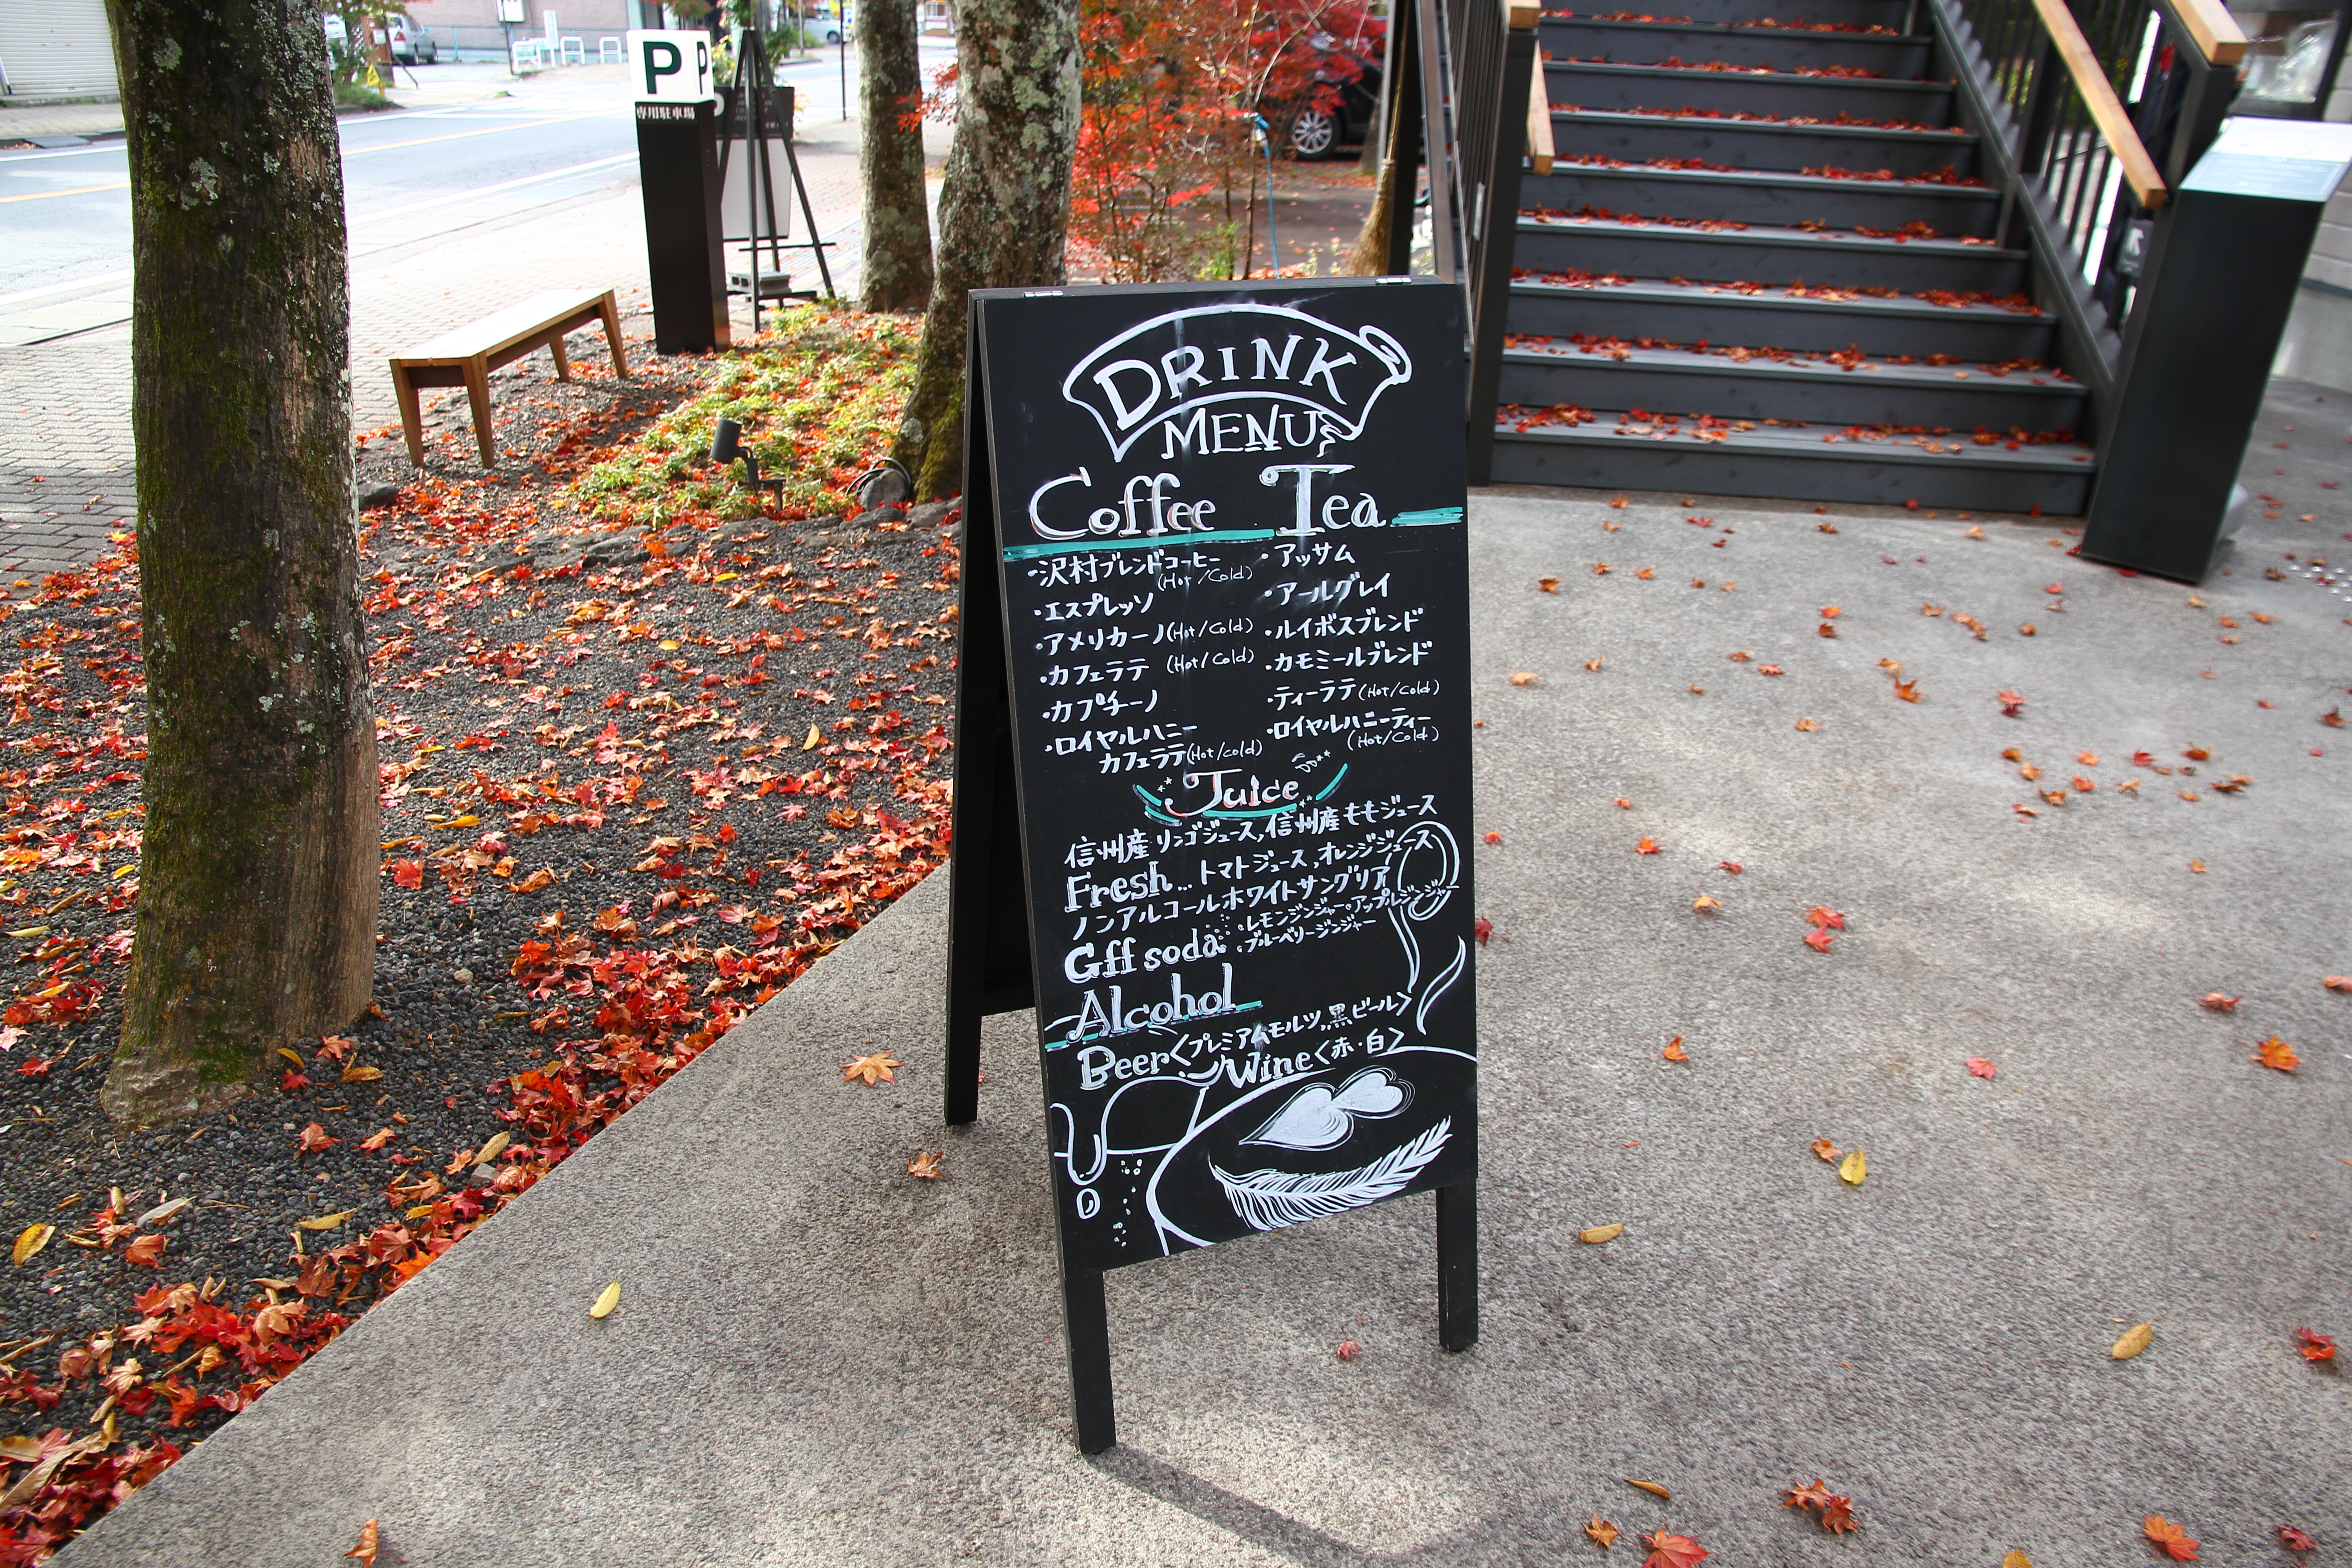 P
P
専用駐車場
DRINK
MENU
Coffee
・沢村ブレンドコーヒー
(Hot/Cold)
・エスプレッソ
・アメリカーノ(Hot/Cold)
・カフェラテ (Hot/Cold)
・カプチーノ
・ロイヤルハニー
カフェラテ(Hot/cold)
Tea
・アッサム
・アールグレイ
・ルイボスブレンド
・カモミールブレンド
・ティーラテ(Hot/cold)
・ロイヤルハニーティー
(Hot/Cold)
Juice
信州産リンゴジュース,信州産ももジュース
Fresh...トマトジュース,オレンジジュース
ノンアルコールホワイトサングリア
Gff soda
・レモンジンジャー・アップルジンジャー
・ブルーベリージンジャー
Alcohol
Beer<プレミアムモルツ,黒ビール>
Wine<赤・白>